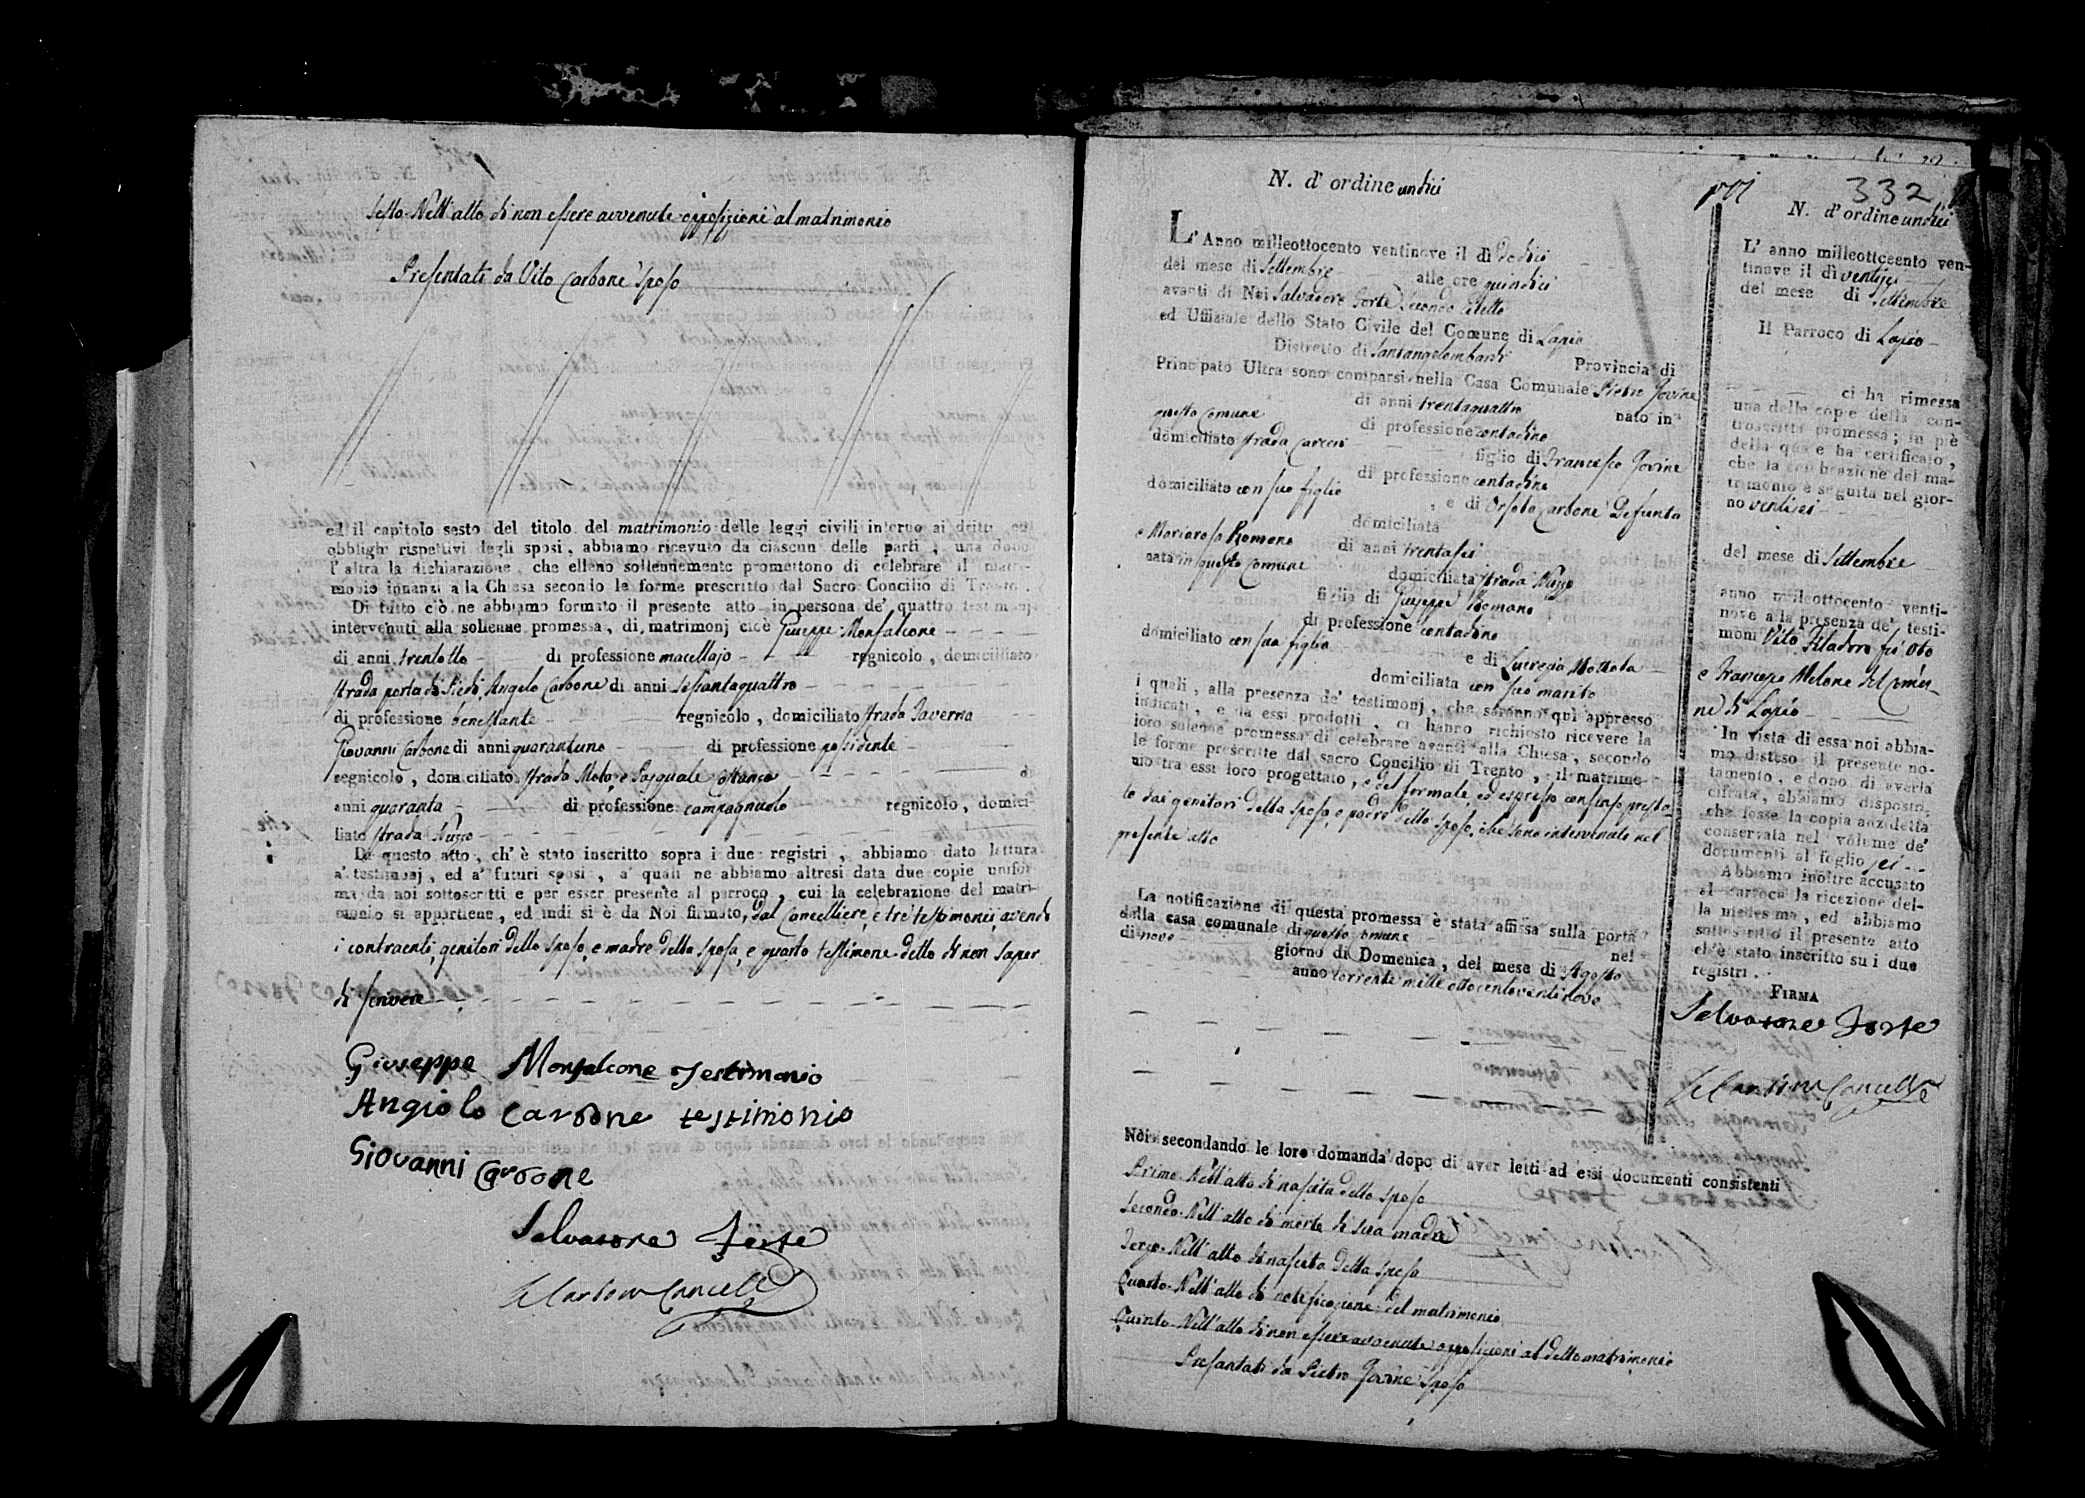 Sesto Nell'atto di non essere avvenute opposizioni al matrimonio
Presentati da Vito Carbone sposo
ed il capitolo sesto del titolo del matrimonio delle leggi civili intorno ai dritti, ed
obblighi rispettivi degli sposi, abbiamo ricevuto da ciascuna delle parti, una dopo
l'altra la dichiarazione, che elleno sollennemente promettono di celebrare il matri-
monio innanzi alla Chiesa secondo le forme prescritte dal Sacro Concilio di Trento.
Di tutto ciò ne abbiamo formato il presente atto in persona de' quattro testimonj
intervenuti alla sollenne promessa, di matrimonj cioè Giuseppe Monfalcone
di anni trentotto di professione macellajo regnicolo, domiciliato
strada porta di Piedi, Angelo Carbone di anni sessantaquattro
di professione benestante regnicolo, domiciliato strada Taverna
Giovanni Carbone di anni quarantuno di professione possidente
regnicolo, domiciliato strada e Pasquale di
anni quaranta di professione campagnuolo regnicolo, domici-
liato strada Nuzzo
Di questo atto, ch'è stato inscritto sopra i due registri, abbiamo dato lettura
a' testimonj, ed a' futuri sposi, a' quali ne abbiamo altresì data due copie unifor-
mi da noi sottoscritti e per esser presente al parroco, cui la celebrazione del matri-
monio si appartiene, ed indi si è da Noi firmato, dal Cancelliere, e tre testimonii, avendo
i contraenti, genitori dello sposo, e madre della sposa, e quarto testimone detto di non saper
di scrivere
Giuseppe Monfalcone Testimonio
Angiolo Carbone testimonio
Giovanni Carbone
Salvatore Forte
Cancell
N. d'ordine undici
L'Anno milleottocento ventinove il dì dodici
del mese di Settembre alle ore quindici
avanti di Noi Salvadore Forte Secondo Eletto
ed Uffiziale dello Stato Civile del Comune di Lapio
Distretto di Santangelombardi Provincia di
Principato Ultra sono comparsi nella Casa Comunale Pietro Jovine
di anni trentaquattro nato in
questo Comune di professione contadino
domiciliato strada Carceri figlio di Francesco Jovine
di professione contadino
domiciliato con suo figlio, e di Orsola Carbone Defunta
domiciliata
e Mariarosa Romano di anni trentasei
nata in questo Comune domiciliata strada Nuzzo
figlia di Giuseppe Romano
di professione contadino
domiciliato con sua figlia e di Lucrezia
domiciliata con suo marito
i quali, alla presenza de' testimonj, che saranno quì appresso
indicati, e da essi prodotti, ci hanno richiesto ricevere la
loro solenne promessa di celebrare avanti alla Chiesa, secondo
le forme prescritte dal sacro Concilio di Trento, il matrimo-
nio tra essi loro progettato, e del formale, ed espresso consenso presta-
to dai genitori della sposa, e padre dello sposo, che sono intervenuti nel
presente atto
La notificazione di questa promessa è stata affissa sulla porta
della casa comunale di questo Comune nel
dì nove giorno di Domenica, del mese di Agosto
anno corrente mille ottocentoventinove
Noi secondando le loro domanda dopo di aver letti ad essi documenti consistenti
Primo Nell'atto di nascita dello sposo
Secondo Nell'atto di morte di sua madre
Terzo Nell'atto di nascita della sposa
Quarto Nell'atto di notificazione del matrimonio
Quinto Nell'atto di non essere avvenute opposizioni al detto matrimonio
Presentati da Pietro Jovine sposo
332
N. d'ordine undici
L'anno milleottocento ven-
tinove il dì ventisei
del mese di Settembre
Il Parroco di Lapio
ci ha rimessa
una delle copie della con-
troscritta promessa; in piè
della qua e ha certificato,
che la celebrazione del ma-
trimonio è seguita nel gior-
no ventisei
del mese di Settembre
anno milleottocento venti-
nove alla presenza de' testi-
moni Vito
e Francesco Melone del Comu-
ne di Lapio
In vista di essa noi abbia-
mo disteso il presente no-
tamento, e dopo di averla
cifrata, abbiamo disposto,
che fosse la copia anzidetta
conservata nel volume de'
documenti al foglio sei
Abbiamo inoltre accusato
al Parroco la ricezione del-
la medesima, ed abbiamo
sottoscritto il presente atto
ch'è stato inscritto su i due
registri.
FIRMA
Salvatore Forte
Cancell